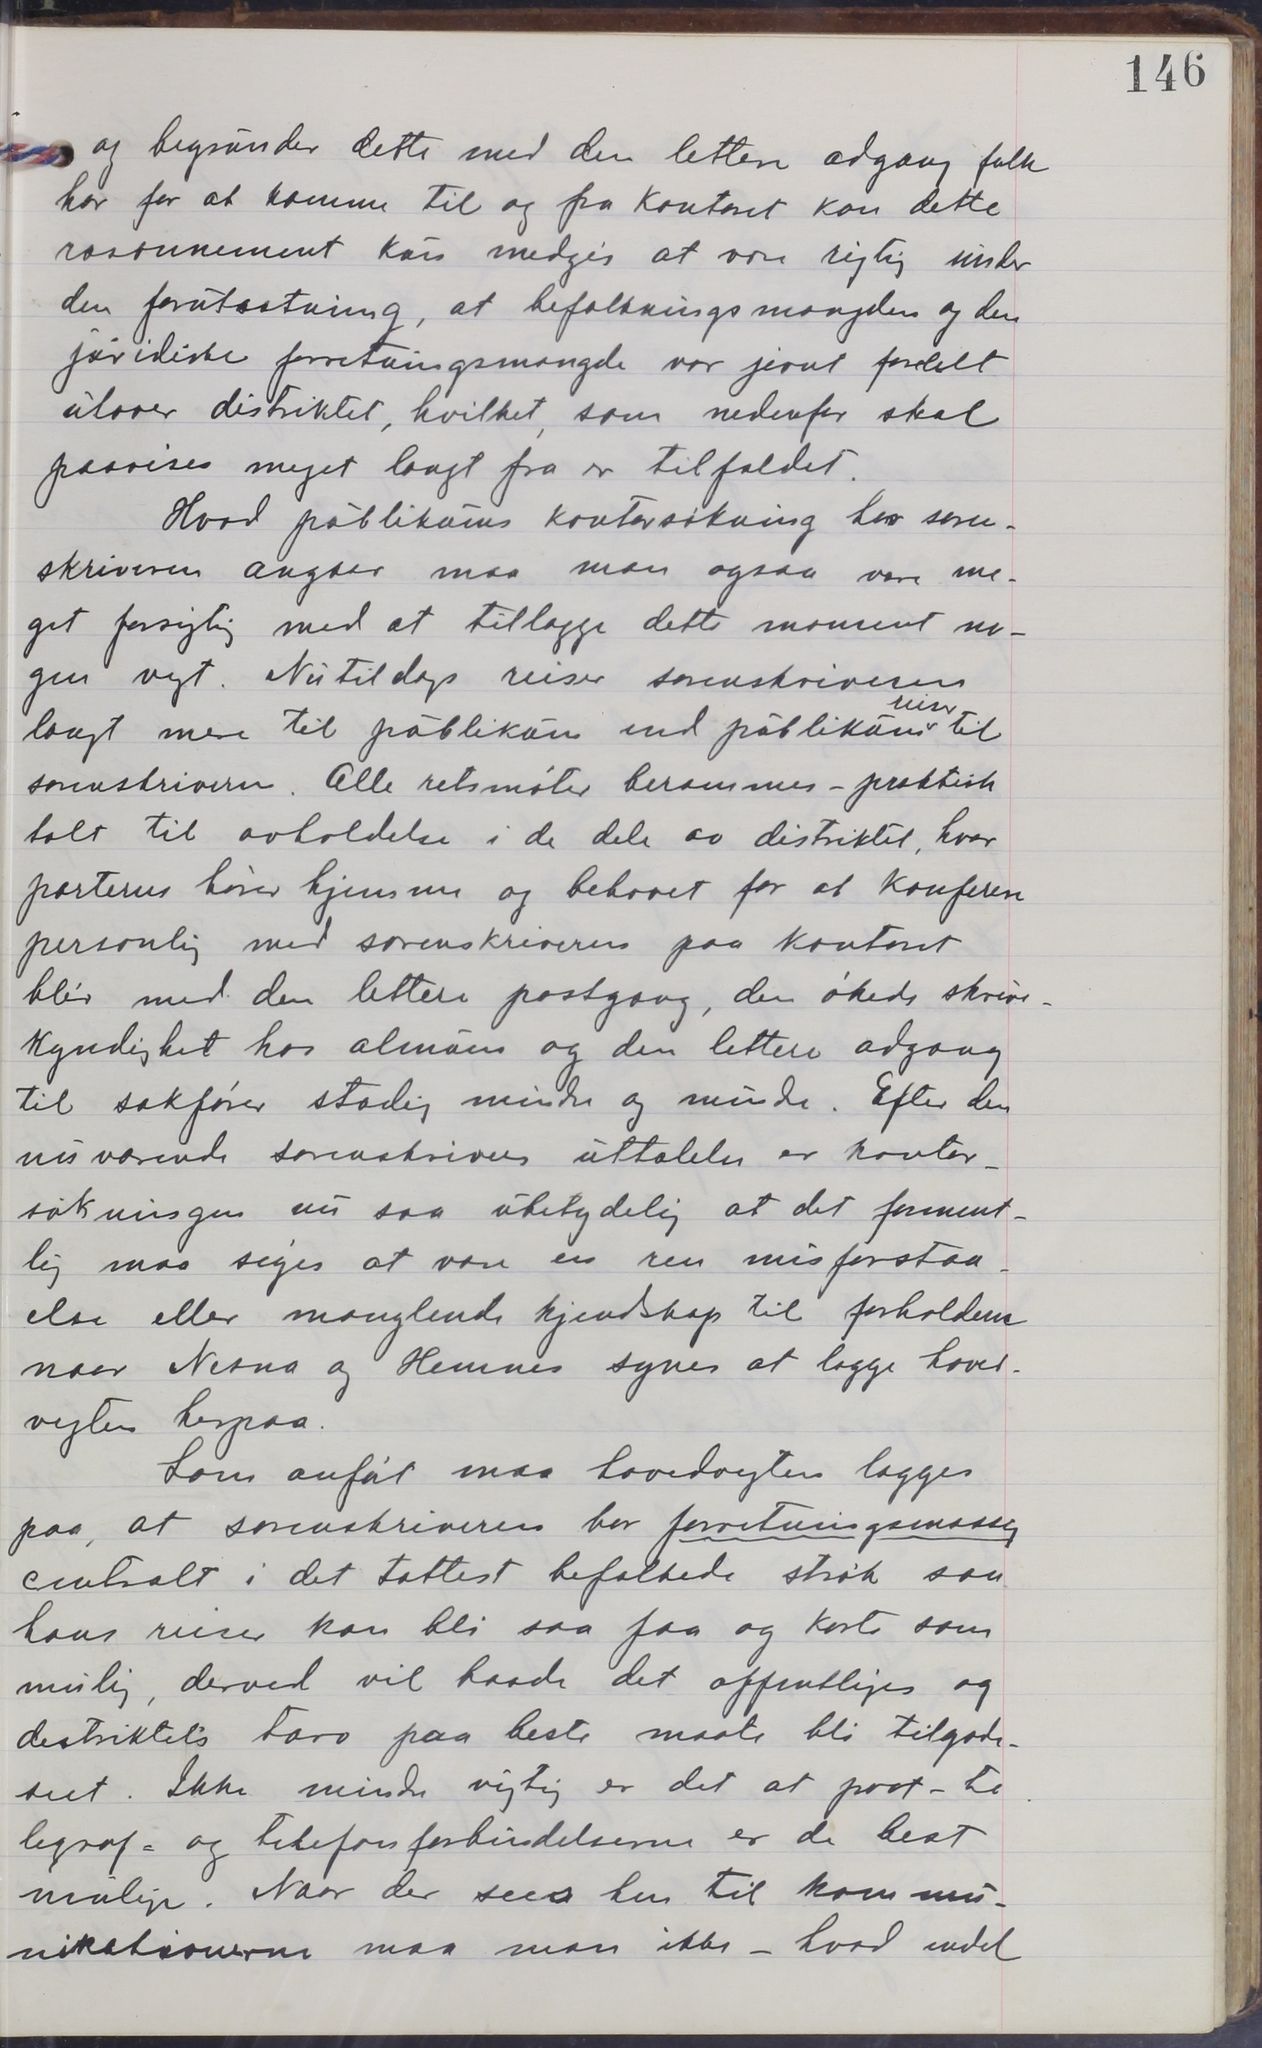 146
og begrunder dette med den lettere adgang folk
har for at komme til og fra kontoret kan dette
rasonnement kun medgis at være rigtig under
den forutsætning, at befolkningsmængden og den
juridiske forretningsmængde var jevnt fordelt
utover distriktet, hvilket, som nedenfor skal
paavises meget langt fra er tilfældet.
Hvad publikums kontorsøkning hos soren-
skriveren angaar maa man ogsaa være me-
get forsigtig med at tillægge dette moment no-
gen vegt. Nutildags reiser sorenskriveren
langt mere til publikum end publikum reiser til
sorenskriveren. Alle retsmøter berammes - praktisk
talt til avholdelse i de dele av distriktet, hvor
parterne hører hjemme og behovet for at konferere
personlig med sorenskriveren paa kontoret
blir med den lettere postgang, den økede skrive-
kyndighet hos almuen og den lettere adgang
til sakfører stadig mindre og mindre. Efter den
nuværende sorenskrivers uttalelse er kontor-
søkningen nu saa ubetydelig at det forment-
lig maa siges at være en ren misforstaa-
else eller manglende kjendskap til forholdene
naar Nesna og Hemnes synes at lægge hoved-
vegten herpaa.
Som anført maa hovedvegten lægges
paa, at sorenskriveren bor forretningsmæssig
centralt i det tættest befolkede strøk saa
hans reiser kan bli saa faa og korte som
mulig, derved vil baade det offentliges og
destriktets tarv paa beste maate bli tilgode-
seet. Ikke mindre vigtig er det at post- te
legraf- og telefonforbindelserne er de best
mulige. Naar der sees hen til kommu-
nikationerne maa man ikke - hvad endel